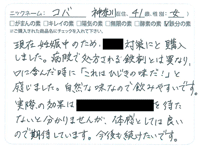 ニックネーム:コバ 神奈川 41歳 性別:女
□がまんの素 □キレイの素 □陽気の素 □無限の素 □酵素の素 ☑鉄分の素
※ご購入された商品名にチェックを入れて下さい。
現在妊娠中のため、 対策にと購入
しました。病院で処方される鉄剤とは異なり、
口に含んだ時に「これはひじきの味だ!」と
感じました。自然な味なので飲みやすいです。
実際の効果は を待た
ないと分かりませんが、体感としては良い
ので期待しています。今後も続けたいです。